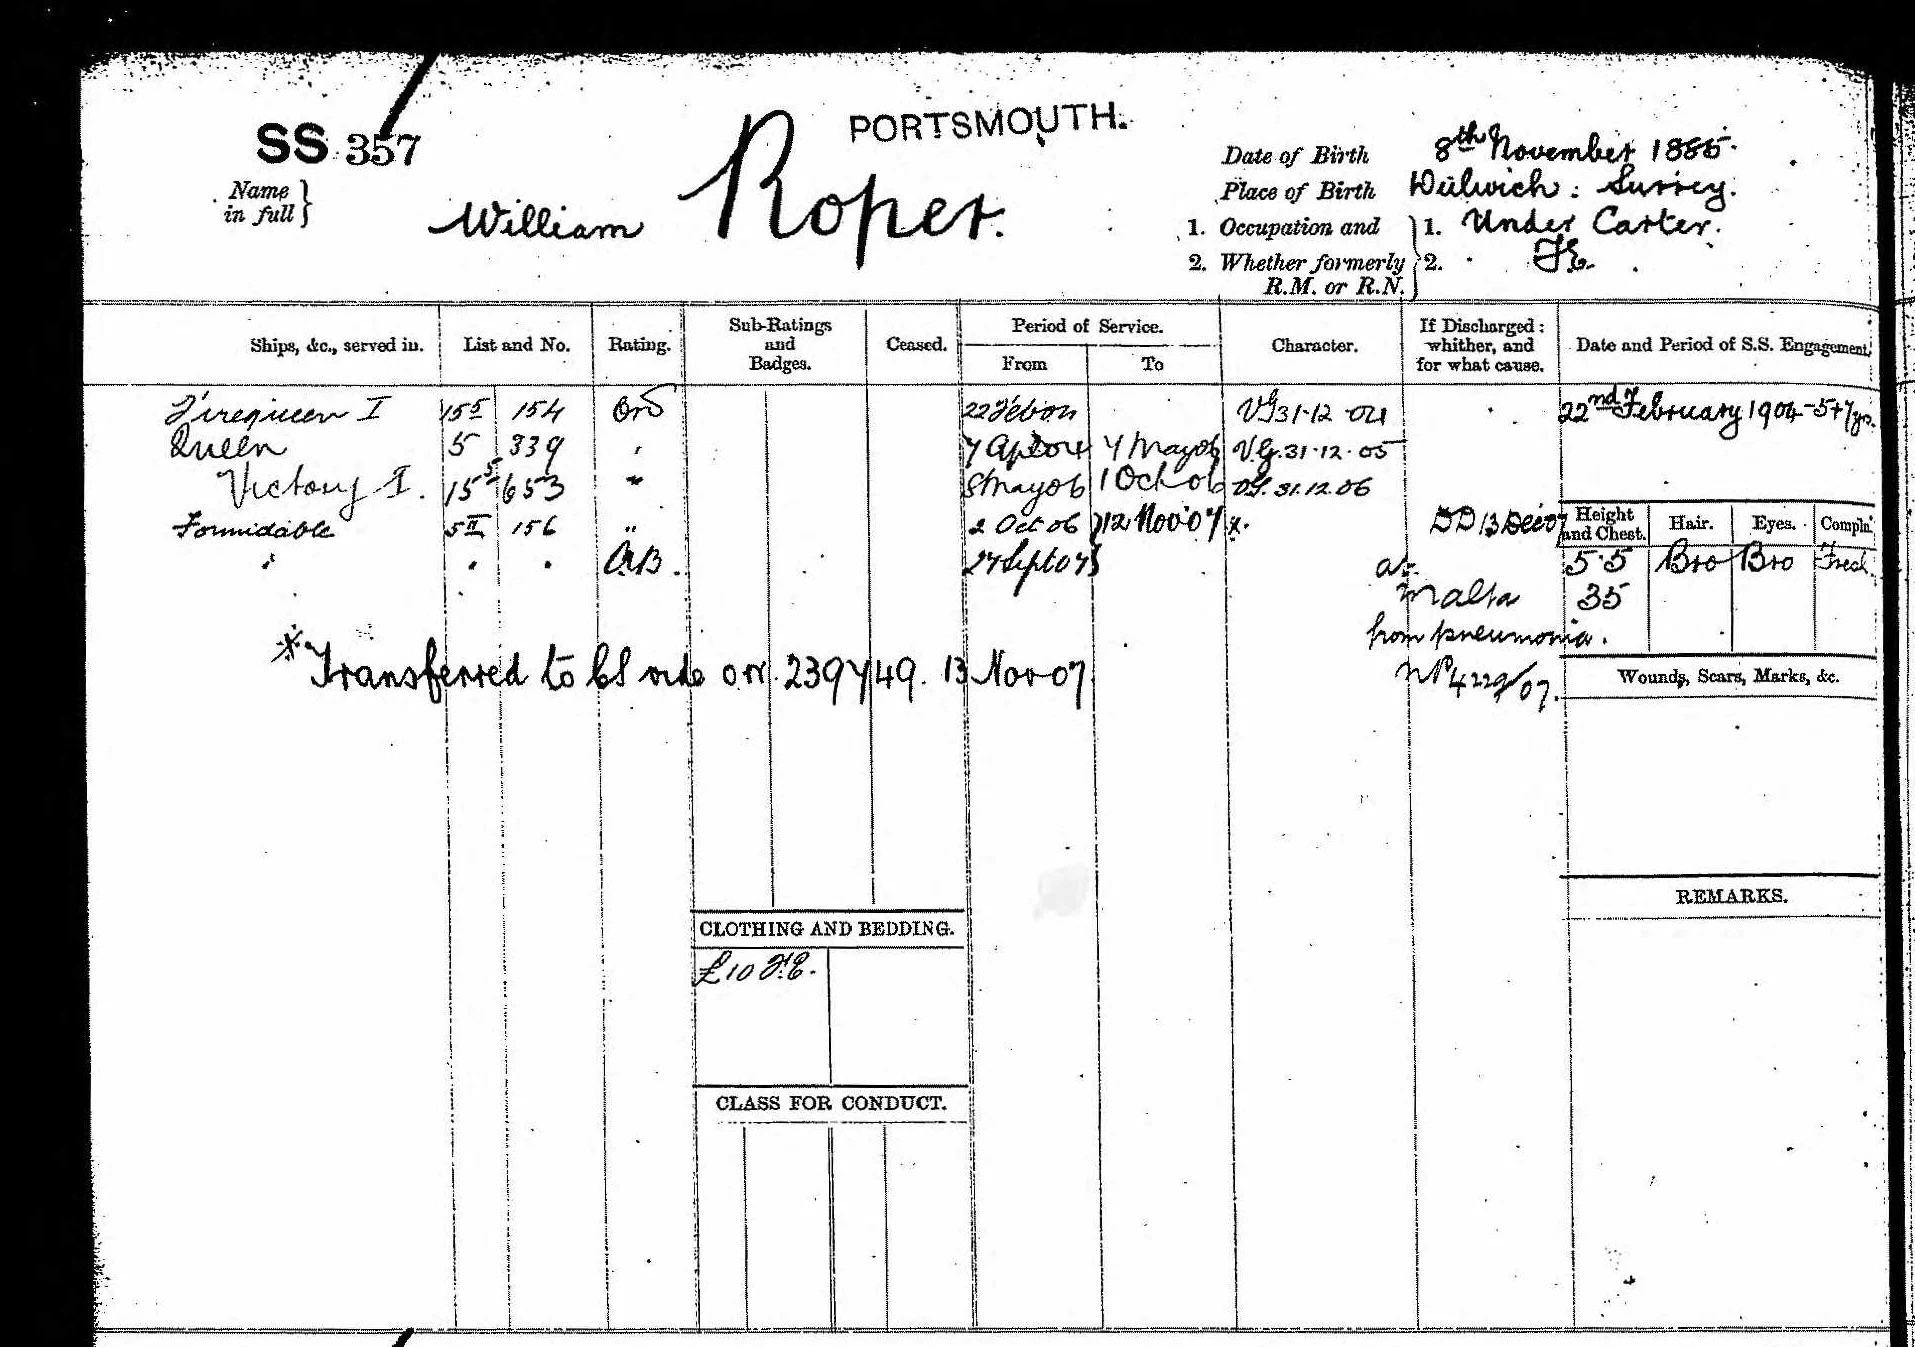 PORTSMOUTH.
SS 357
Name in full } William Roper.
Date of Birth 8th November 1885.
Place of Birth Dulwich: Surrey.
1. Occupation and 1. Under Carter.
2. Whether formerly R.M. or R.N. 2. FE.
Ships, &c., served in. List and No. Rating. Sub-Ratings and Badges. Ceased. Period of Service. From To Character. If Discharged: whither, and for what cause. Date and Period of S.S. Engagement.
Firequeen I 15 5 154 Ord 22 Feb 04 VG 31-12-04 22nd February 1904 - 5+7 yrs.
Queen 5 339 " 7 Apl 04 7 May 06 V.G. 31-12-05
Victory I. 15 5 653 " 8 May 06 1 Oct 06 VG. 31.12.06
Formidable 5 II 156 " 2 Oct 06 } 12 Nov 07 x. DD 13 Dec 07
" " " AB. 27 Sept 07 } at
Malta
from pneumonia.
NP 4229/07.
Height and Chest. Hair. Eyes. Compln.
5.5 Bro Bro Fresh
35
* Transferred to CS vide o.n. 239749. 13 Nov 07
Wounds, Scars, Marks, &c.
REMARKS.
CLOTHING AND BEDDING.
£10 F.E.
CLASS FOR CONDUCT.